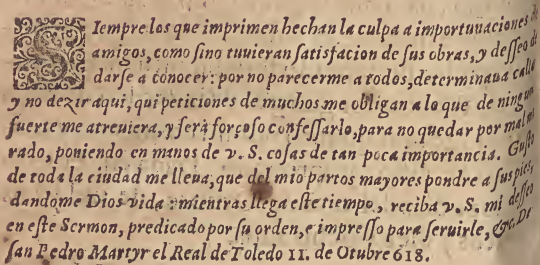 SIempre los que imprimen hechan la culpa a importunaciones de
amigos, como sino tuuieran satisfacion de sus obras, y desseo de
darse a conocer: por no parecerme a todos, determinaua callar
y no dezir aqui, qui peticiones de muchos me obligan a lo que de ningun
suerte me atreuiera, y será forçoso confessarlo, para no quedar por mal mi
rado, poniendo en manos de v. S. cosas de tan poca importancia. Gusto
de toda la ciudad me lleua, que del mio partos mayores pondre a sus pies,
dandome Dios vida: mientras llega este tiempo, reciba v. S. mi desseo
en este Sermon, predicado por su orden, e impresso para seruirle, &c. De
san Pedro Martyr el Real de Toledo 11. de Otubre 618.